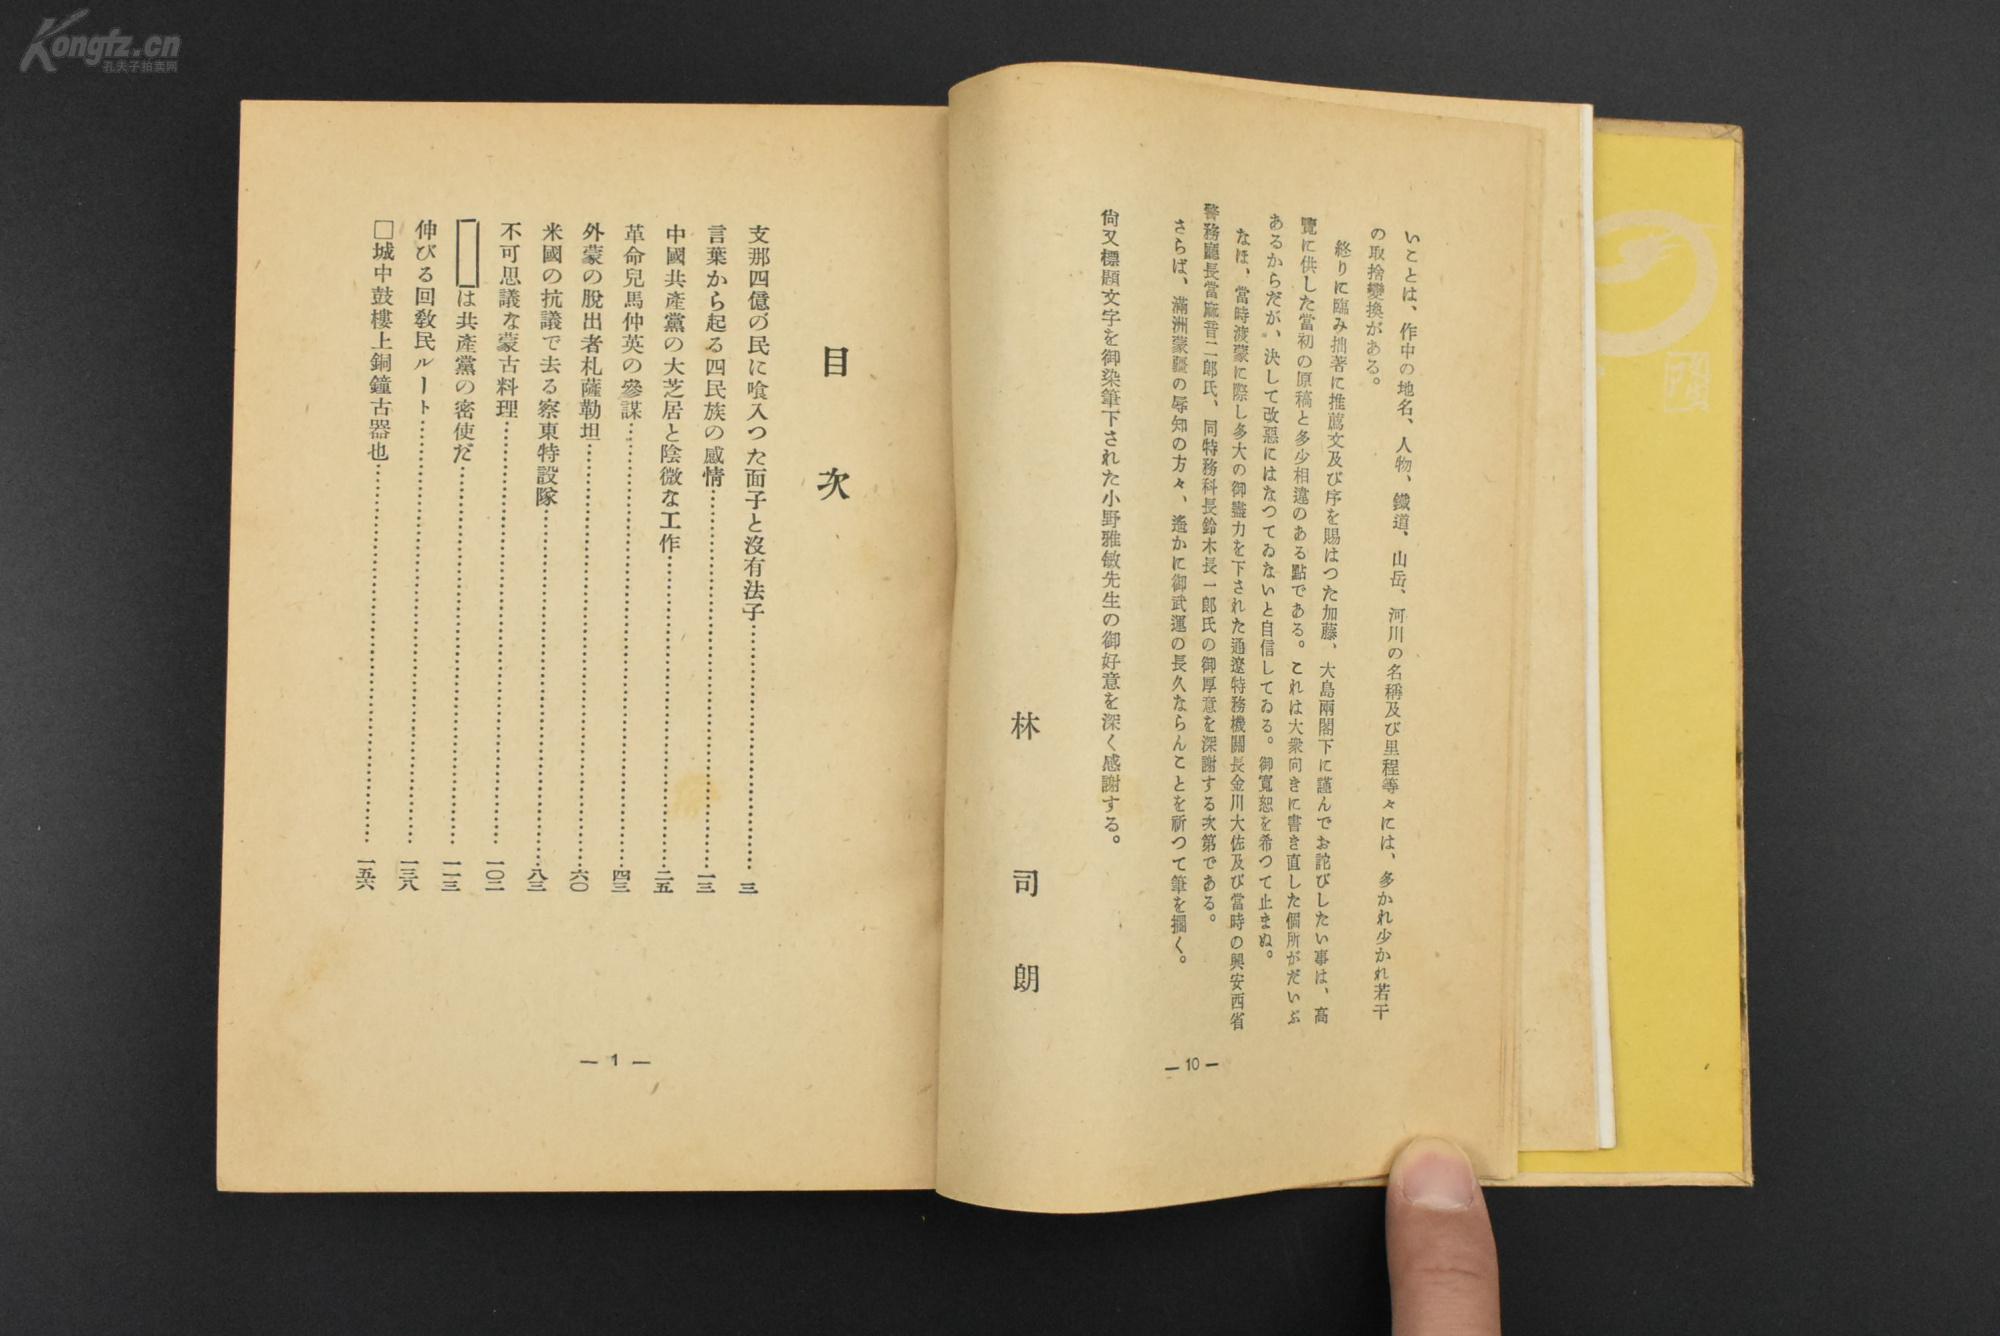 Kongfz.cn
孔夫子拍卖网
いことは、作中の地名、人物、鐵道、山岳、河川の名稱及び里程等々には、多かれ少かれ若干
の取捨變換がある。
終りに臨み拙著に推薦文及び序を賜はつた加藤、大島兩閣下に謹んでお詫びしたい事は、高
覽に供した當初の原稿と多少相違のある點である。これは大衆向きに書き直した個所がだいぶ
あるからだが、決して改惡にはなつてゐないと自信してゐる。御寬恕を希つて止まぬ。
なほ、當時渡蒙に際し多大の御盡力を下された通遼特務機關長金川大佐及び當時の興安西省
警務廳長當麻晋二郎氏、同特務科長鈴木長一郎氏の御厚意を深謝する次第である。
さらば、滿洲蒙疆の辱知の方々、遙かに御武運の長久ならんことを祈つて筆を擱く。
尙又標題文字を御染筆下された小野雅敏先生の御好意を深く感謝する。
林司朗
— 10 —
目次
支那四億の民に喰入つた面子と沒有法子……三
言葉から起る四民族の感情……一三
中國共產黨の大芝居と陰微な工作……二五
革命兒馬仲英の參謀……四三
外蒙の脫出者札薩勒坦……六〇
米國の抗議で去る察東特設隊……八三
不可思議な蒙古料理……一〇二
は共產黨の密使だ……一一三
伸びる回敎民ルート……一三八
□城中鼓樓上銅鐘古器也……一五六
— 1 —